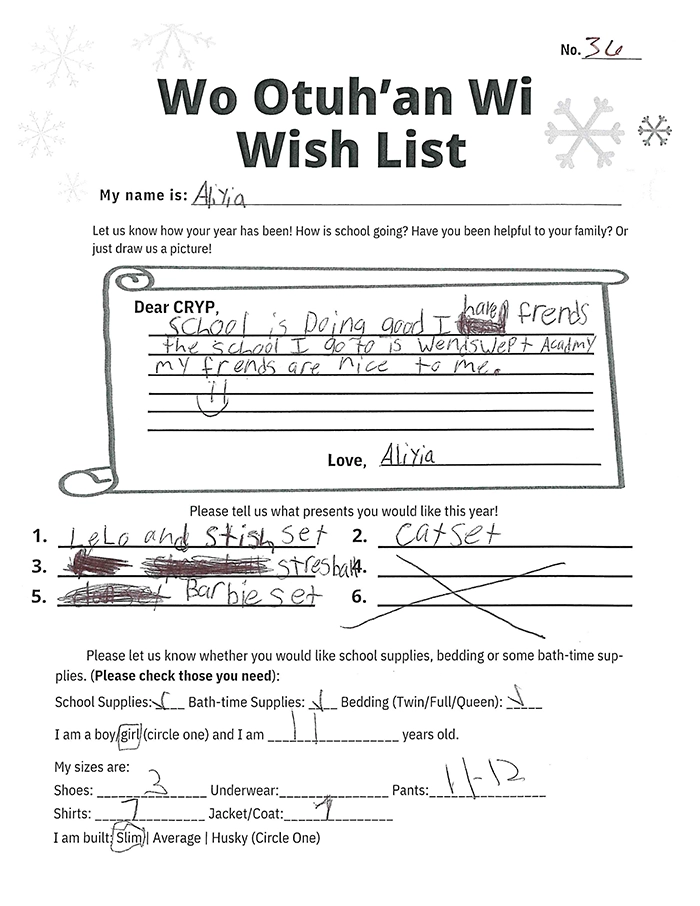 No. 36
Wo Otuh'an Wi
Wish List
My name is: Aliyia
Let us know how your year has been! How is school going? Have you been helpful to your family? Or
just draw us a picture!
Dear CRYP,
School is Doing good I have frends
the school I go to is Weniswept Acadmy
my frends are nice to me.
Love, Aliyia
Please tell us what presents you would like this year!
1. LeLo and Stish set 2. catset
3. stresball 4.
5. Barbie set 6.
Please let us know whether you would like school supplies, bedding or some bath-time sup-
plies. (Please check those you need):
School Supplies: ✓ Bath-time Supplies: ✓ Bedding (Twin/Full/Queen): ✓
I am a boy/girl (circle one) and I am 11 years old.
My sizes are:
Shoes: 3 Underwear: Pants: 11-12
Shirts: 7 Jacket/Coat: 7
I am built: Slim | Average | Husky (Circle One)